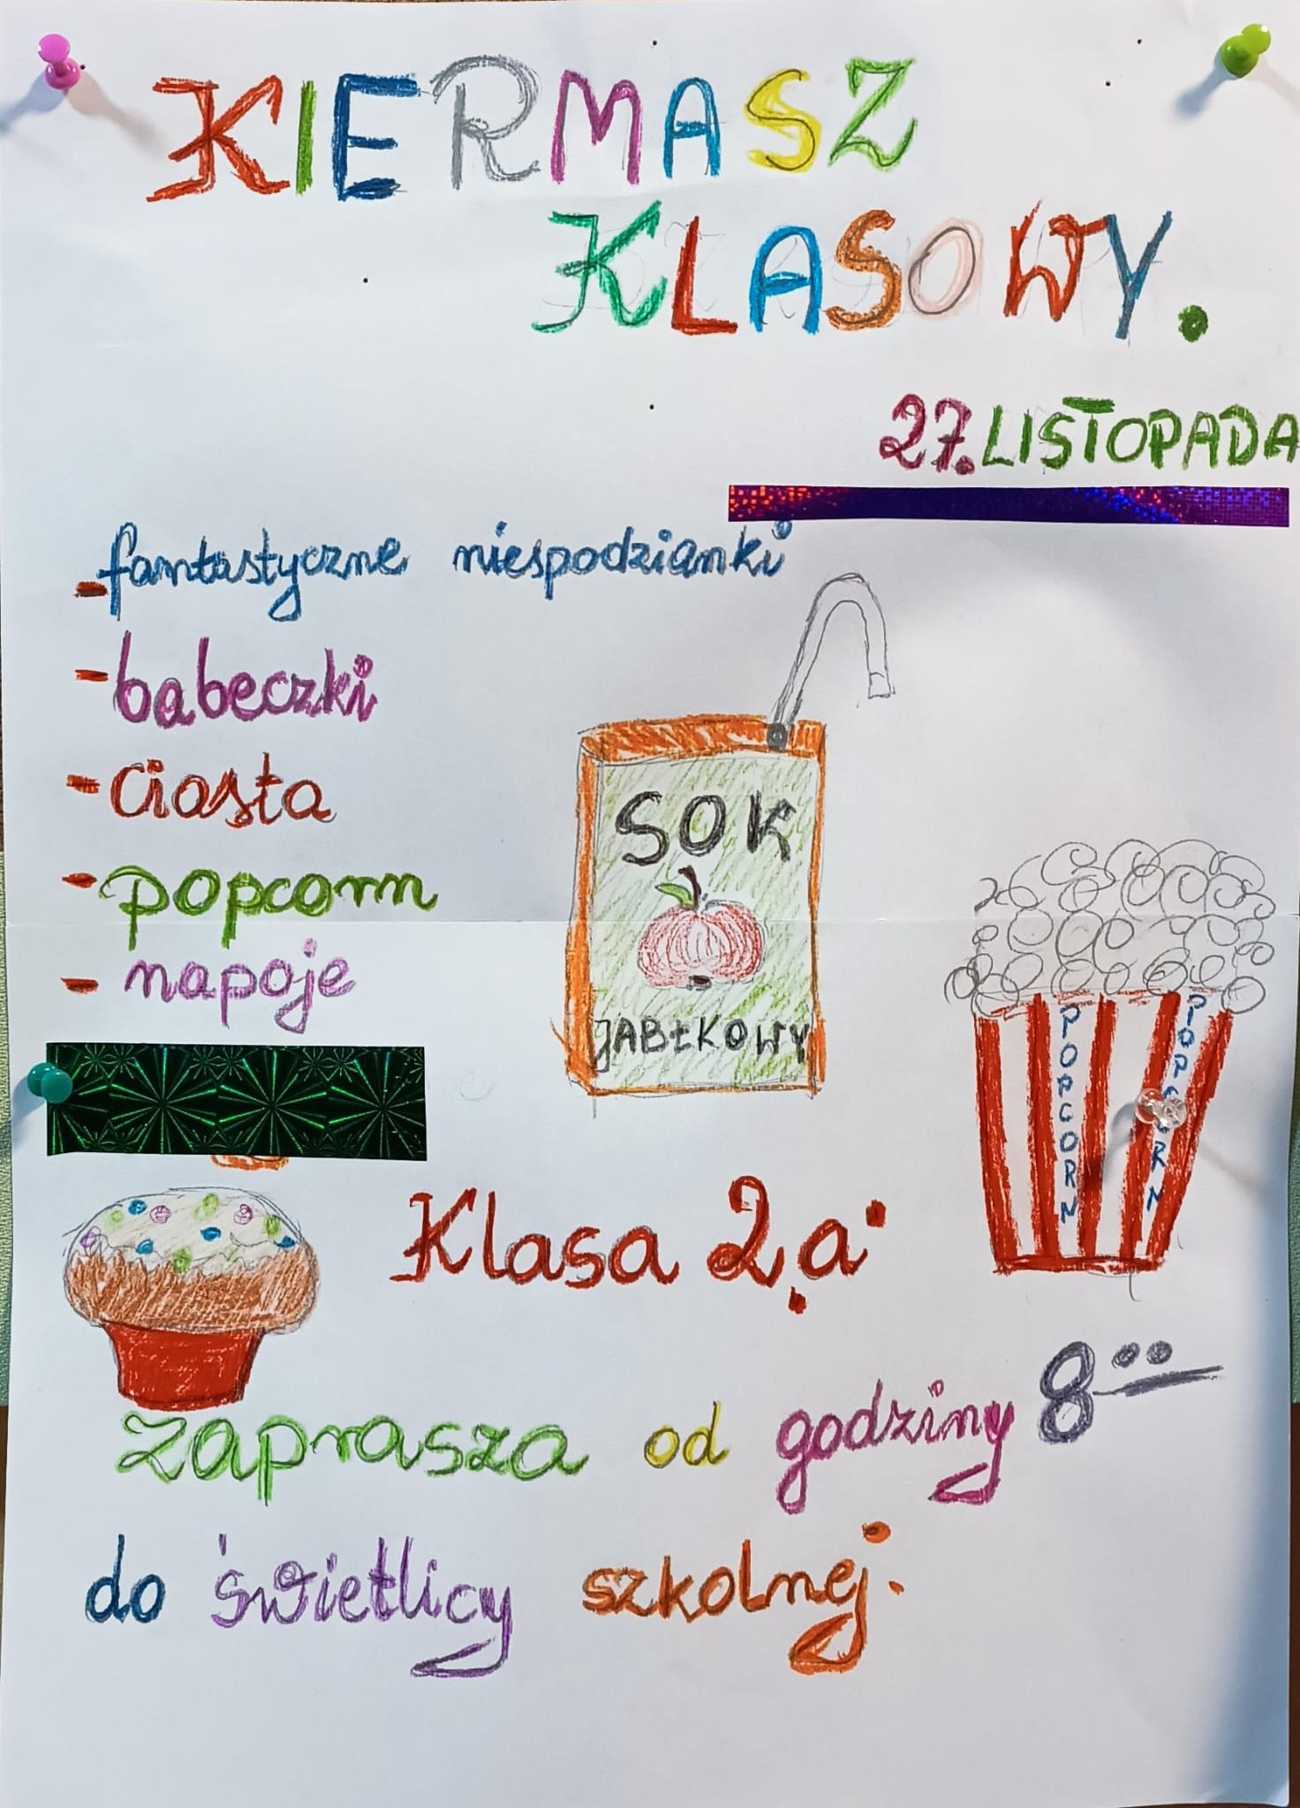 KIERMASZ
KLASOWY.
27.LISTOPADA
- fantastyczne niespodzianki
- babeczki
- ciasta
- popcorn
- napoje
SOK
JABŁKOWY
POPCORN
POPCORN
Klasa 2,,a"
zaprasza od godziny 8⁰⁰
do świetlicy szkolnej.